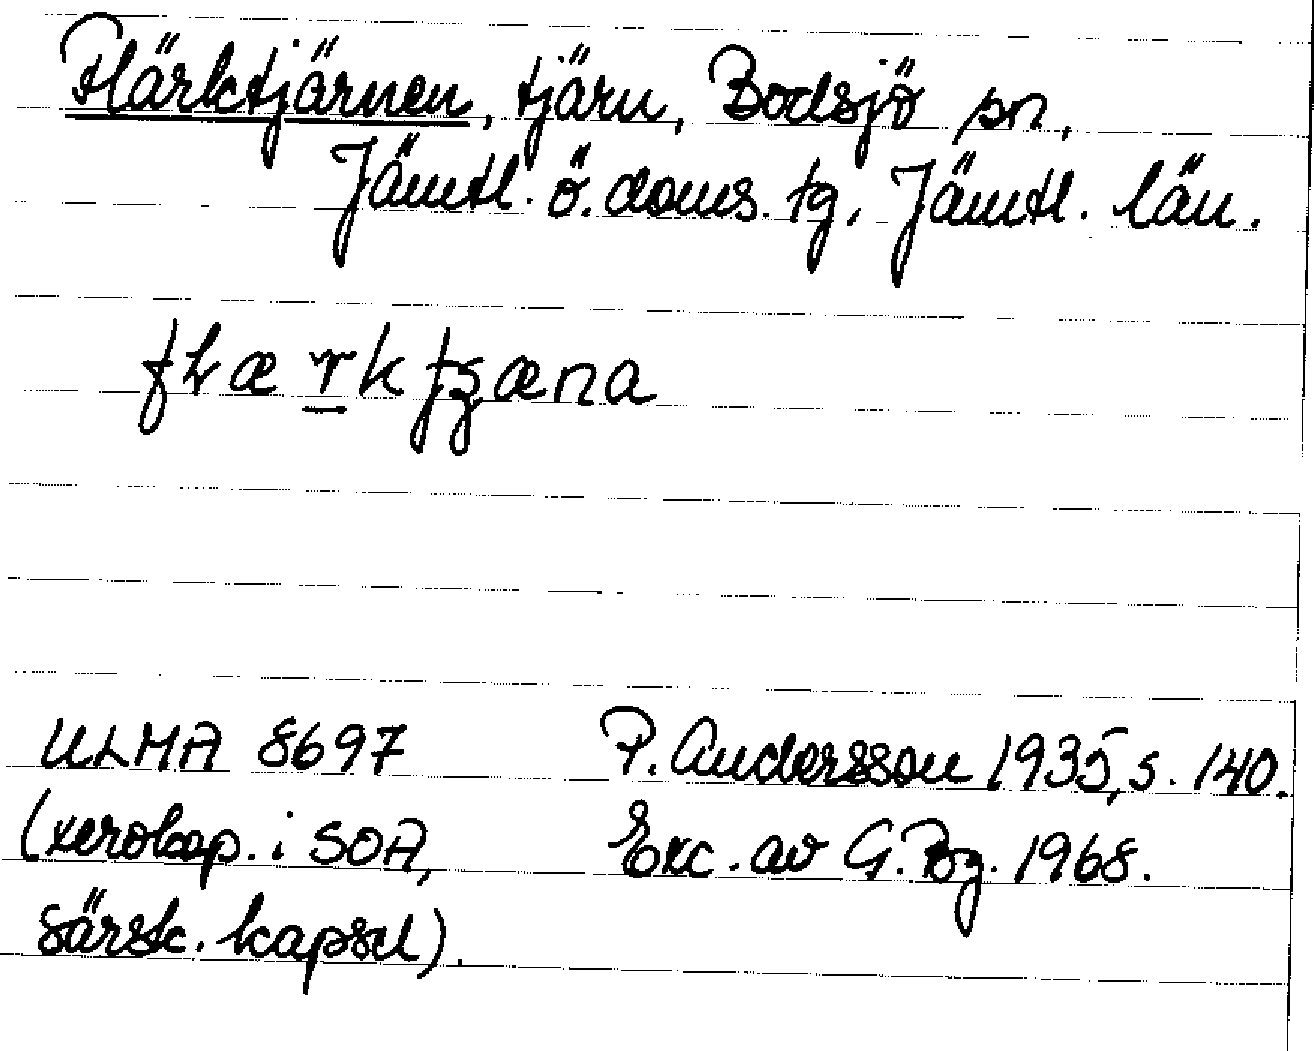 Flärktjärnen, tjärn, Bodsjö sn,
Jämtl. ö. doms. tg, Jämtl. län.
ULMA 8697 P. Andersson 1935, s. 140.
(xerokop. i SOA, Exc. av G. Bg. 1968.
särsk. kapsel).